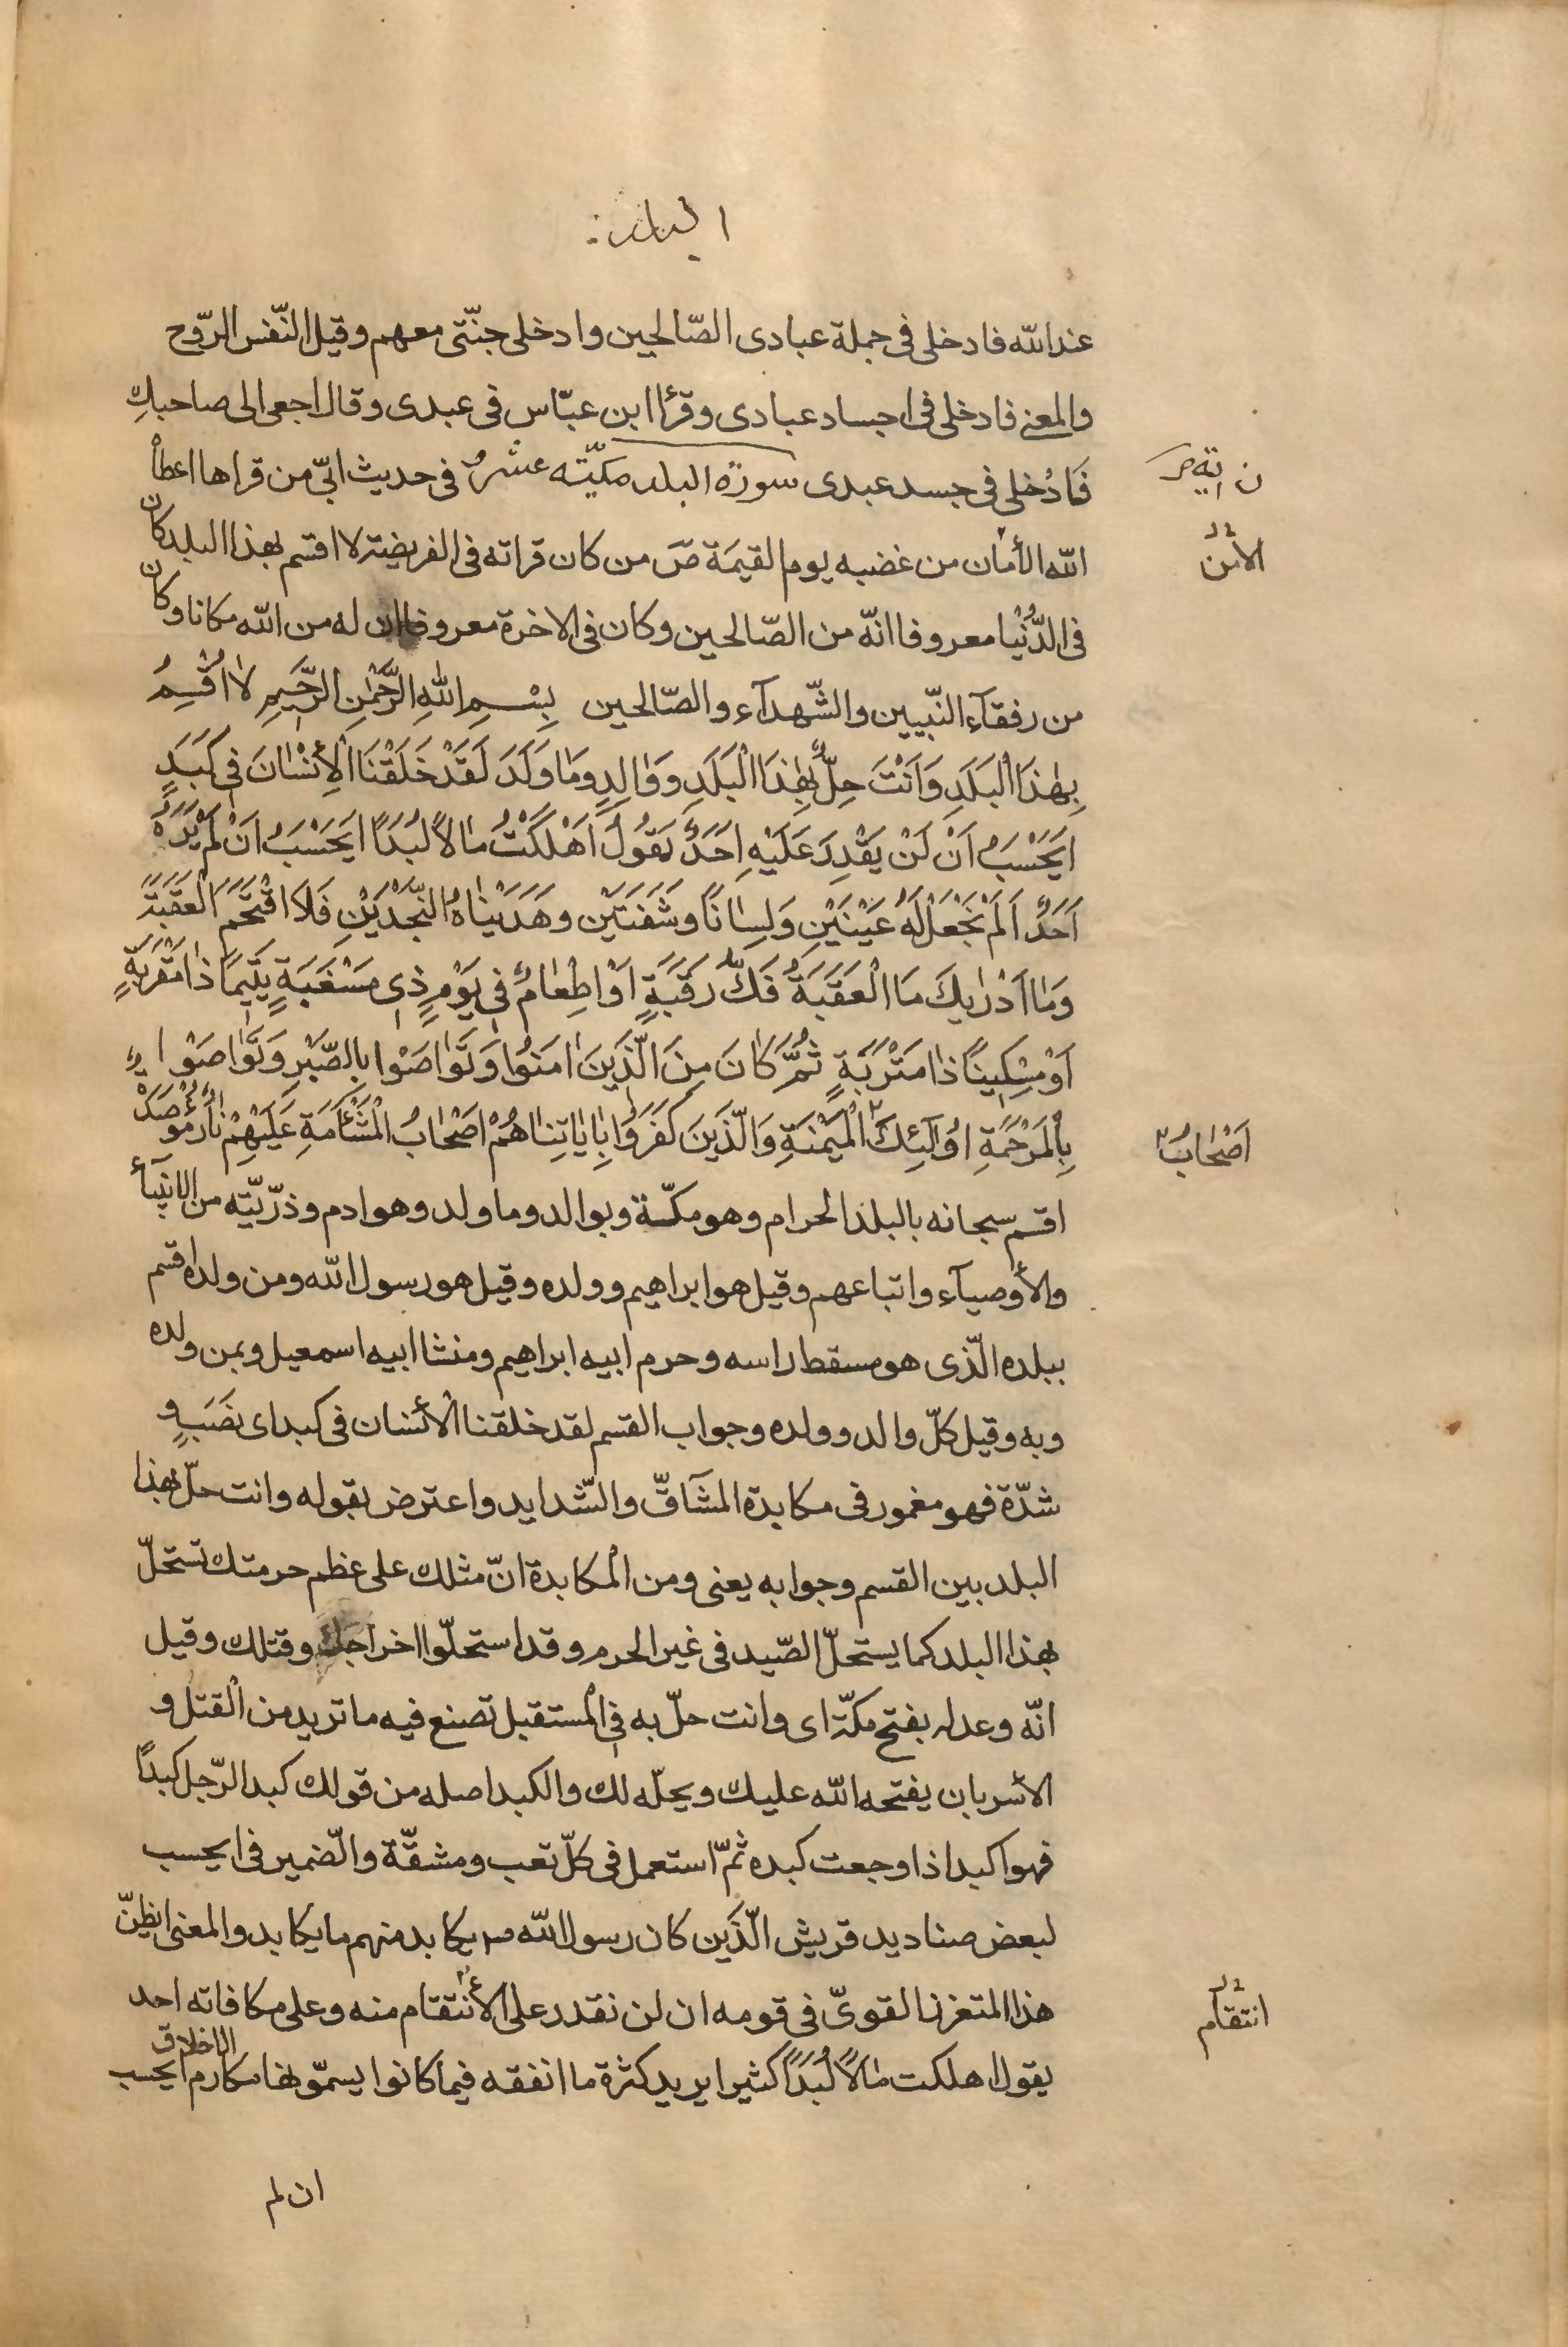 البلد
عند الله فادخلى فى جملة عبادى الصّالحين وادخلى جنّتى معهم وقيل النّفس الرّوح
والمعنى فادخلى فى اجساد عبادى وقرأ ابن عبّاس فى عبدى وقال ارجعى الى صاحبك
فَادُخلى فى جسد عبدى سورة البلد مكيّته عشرون فى حديث ابىّ من قراها اعطاْ
ن اية
الله الأمان من غضبه يوم القيمَة صَ من كان قراته فى الفريضة لا اقسم بهذا البلد كان
الأمن
فى الدُّنْيا معروفا انّه من الصّالحين وكان فى الاخرة معروفا ان له من الله مكانا وكان
من رفقآء النّبيين والشّهدآء والصّالحين بِسْمِ اللهِ الرَّحْمٰنِ الرَّحيمِ لاٰ اُقْسِمُ
بِهٰذَا الْبَلَدِ وَاَنْتَ حِلٌّ بِهٰذَا الْبَلَدِ وَوٰالِدٍ وَمٰا وَلَدَ لَقَدْ خَلَقْنَا الْأِنْسٰانَ فى كَبَدٍ
ايَحْسَبُ اَنْ لَنْ يَقْدِرَ عَلَيْهِ اَحَدٌ يَقُولُ اَهْلَكْتُ مٰالاً لُبَدًا ايَحْسَبُ اَنْ لَمْ يَرَهُ
اَحَدٌ اَلَمْ نَجْعَلْ لَهُ عَيْنَيْنِ وَلِسٰانًا وشَفَتَيْنِ وهَدَيْنٰاهُ النَّجْدَيْنِ فَلاَ اقْتَحَمَ الْعَقَبَةَ
وَمٰا اَدْرٰيكَ مَا الْعَقَبَةُ فَكُّ رَقَبَةٍ اَوْ اِطْعٰامٌ فى يَوْمٍ ذى مَسْغَبَةٍ يَتيمًا ذٰا مَقْرَبَةٍ
اَوْ مِسْكينًا ذٰا مَتْرَبَةٍ ثُمَّ كٰانَ مِنَ الَّذينَ اٰمَنوُا وَتَوٰاصَوْا بِالصَّبْرِ وَتَوٰاصَوْا
بِالْمَرْحَمَةِ اوُلٰٓئِكَ الْمَيْمَنَةِ وَالَّذينَ كَفَروُا بِاٰيٰاتِنٰا هُمْ اَصْحٰابُ الْمَشْأَمَةِ عَلَيْهِمْ نٰارٌ مُؤْصَدَةٌ
اَصْحٰابُ
اقسم سبحانه بالبلد الحرام وهو مكّة وبوالد وما ولد وهو ادم وذرّيّته من الانبيآء
والأوصيآء واتباعهم وقيل هو ابراهيم وولده وقيل هو رسول الله ومن ولده اقسم
ببلده الّذى هو مسقط راسه وحرم ابيه ابراهيم ومنشا ابيه اسمعيل وبمن ولده
وبه وقيل كلّ والد وولده وجواب القسم لقد خلقنا الأنسان فى كبد اى نصَبٍ و
شدّة فهو مغمور فى مكابدة المشآقّ والشّدايد واعترض بقوله وانت حلّ بهذا
البلد بين القسم وجوابه يعنى ومن المكابدة انّ مثلك على عظم حرمتك تستحلّ
بهذا البلد كما يستحلّ الصّيد فى غير الحرم وقد استحلّوا اخراجك وقتلك وقيل
انّه وعد له بفتح مكّة اى وانت حلّ به فى المستقبل تصنع فيه ما تريد من القتل و
الأسر بان يفتحه الله عليك ويحلّه لك والكبد اصله من قولك كبد الرّجل كبدًا
فهو اكبد اذا وجعت كبده ثمّ استعمل فى كلّ تعب ومشقّة والضّمير فى ايحسب
لبعض صناديد قريش الّذَين كان رسول الله ص يكابد منهم ما يكابد والمعنى ايظنّ
هذا المتعزز القوىّ فى قومه ان لن نقدر على الأنتقام منه وعلى مكافاته احد
انتقام
يقول اهلكت مٰالاً لُبَدًا كثيرا يريد كثرة ما انفقه فيما كانوا يسمّونها مكارم الاخلاق ايحسب
ان لم